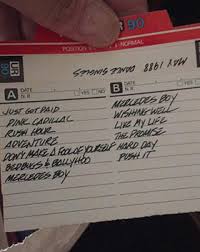 UR
90
UR 90
POSITION NORMAL
MAY 1988 DANCE SINGLES
A DATE YES NO
N.R.
B DATE YES NO
N.R.
JUST GOT PAID
PINK CADILLAC
RUSH HOUR
ADVENTURE
DON'T MAKE A FOOL OF YOURSELF
BEDBUGS & BALLYHOO
MERCEDES BOY
MERCEDES BOY
WISHING WELL
LIVE MY LIFE
THE PROMISE
HARD DAY
PUSH IT